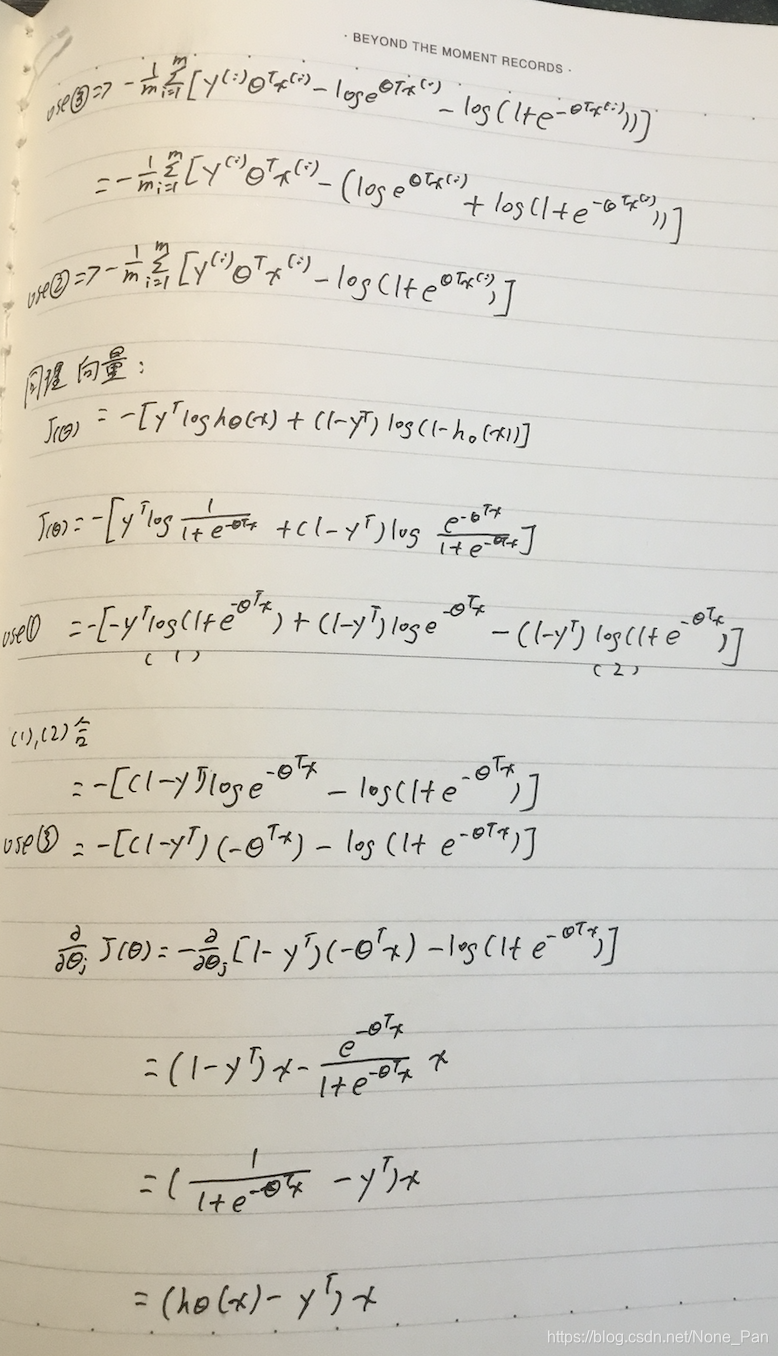 · BEYOND THE MOMENT RECORDS ·
use③ => -1/m Σ_{i=1}^{m} [y^{(i)}θ^T x^{(i)} - log e^{θ^T x^{(i)}} - log(1+e^{-θ^T x^{(i)}})]
= -1/m Σ_{i=1}^{m} [y^{(i)}θ^T x^{(i)} - (log e^{θ^T x^{(i)}} + log(1+e^{-θ^T x^{(i)}}))]
use② => -1/m Σ_{i=1}^{m} [y^{(i)}θ^T x^{(i)} - log(1+e^{θ^T x^{(i)}})]
同理 向量:
J(θ) = -[y^T log hθ(x) + (1-y^T) log(1-h_θ(x))]
J(θ) = -[y^T log \frac{1}{1+e^{-θ^T x}} + (1-y^T) log \frac{e^{-θ^T x}}{1+e^{-θ^T x}}]
use① = -[-y^T log(1+e^{-θ^T x}) + (1-y^T) log e^{-θ^T x} - (1-y^T) log(1+e^{-θ^T x})]
(1) (2)
(1),(2)合
= -[(1-y^T) log e^{-θ^T x} - log(1+e^{-θ^T x})]
use③ = -[(1-y^T)(-θ^T x) - log(1+e^{-θ^T x})]
\frac{∂}{∂θ_j} J(θ) = -\frac{∂}{∂θ_j} [1-y^T)(-θ^T x) - log(1+e^{-θ^T x})]
= (1-y^T)x - \frac{e^{-θ^T x}}{1+e^{-θ^T x}} x
= (\frac{1}{1+e^{-θ^T x}} - y^T)x
= (hθ(x) - y^T)x
https://blog.csdn.net/None_Pan